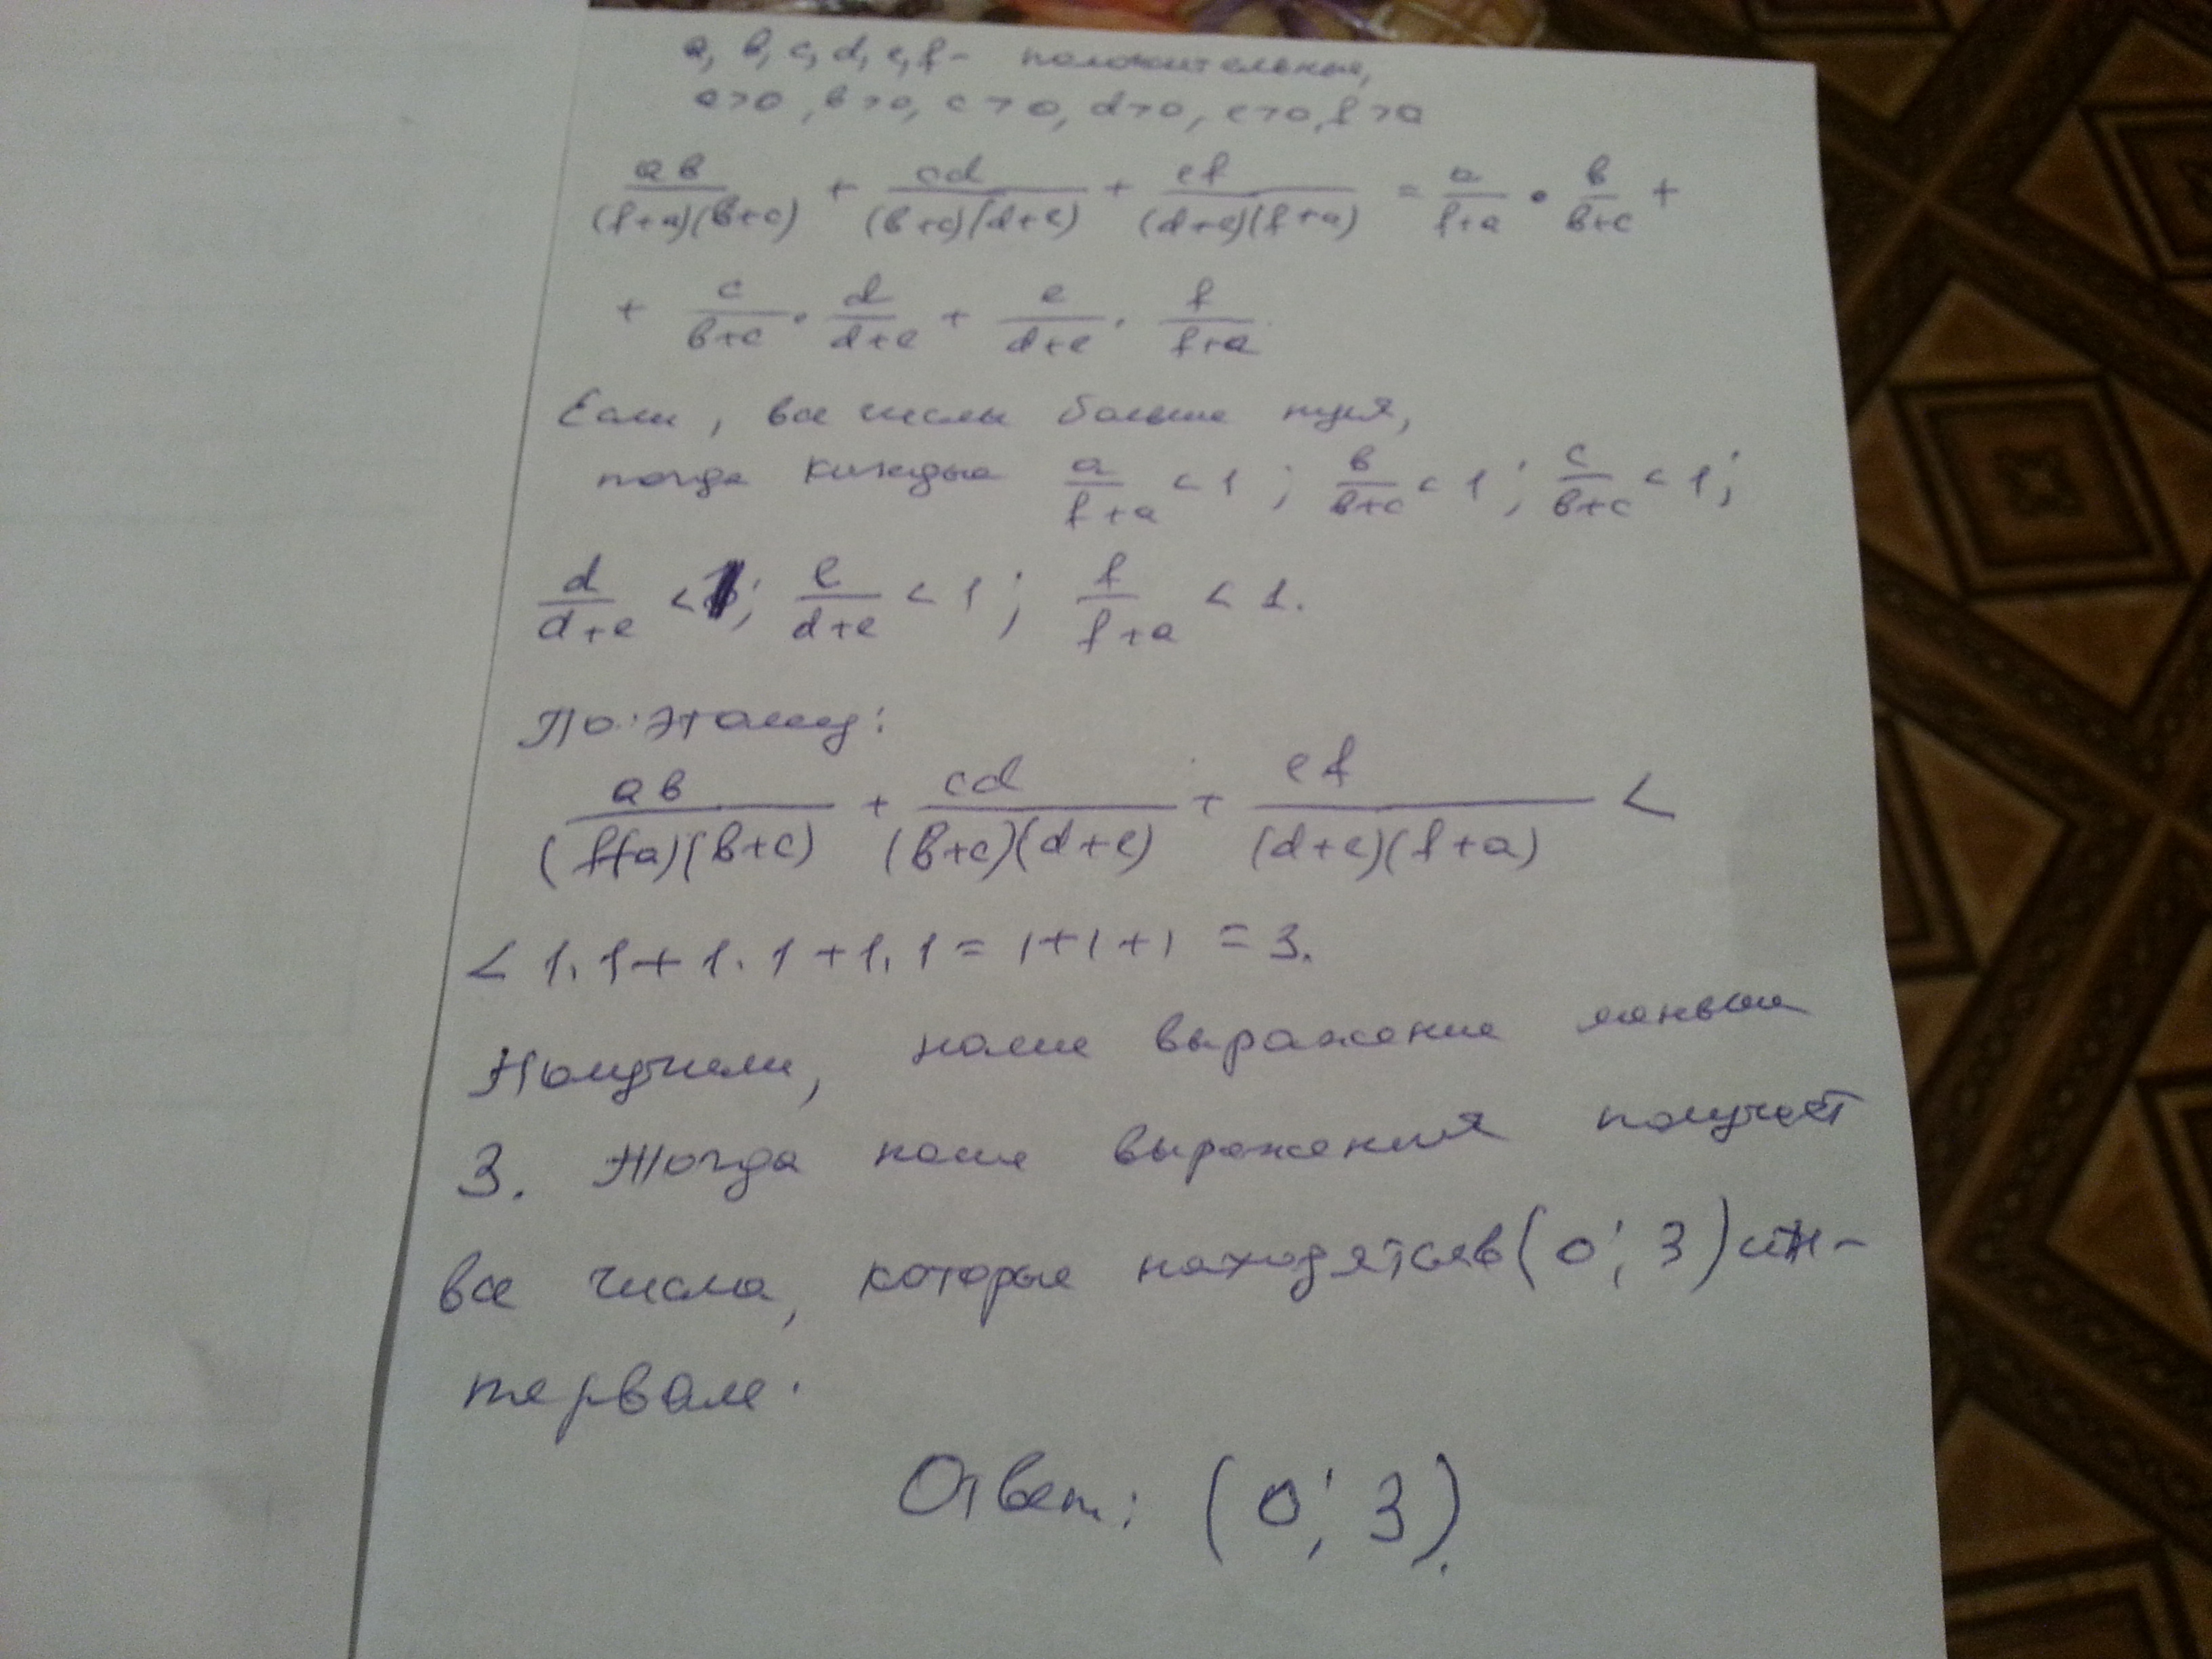 a, b, c, d, e, f - положительные,
a>0, b>0, c>0, d>0, e>0, f>0
ab/((f+a)(b+c)) + cd/((b+c)(d+e)) + ef/((d+e)(f+a)) = a/(f+a) · b/(b+c) +
+ c/(b+c) · d/(d+e) + e/(d+e) · f/(f+a).
Если, все числы больше нуля,
тогда каждые a/(f+a) < 1; b/(b+c) < 1; c/(b+c) < 1;
d/(d+e) < 1; e/(d+e) < 1; f/(f+a) < 1.
По этому:
ab/((f+a)(b+c)) + cd/((b+c)(d+e)) + ef/((d+e)(f+a)) <
< 1·1 + 1·1 + 1·1 = 1+1+1 = 3.
Получили, наше выражение меньше
3. Тогда наше выражения получает
все числа, которые находятся в (0; 3) ин-
тервале.
Ответ: (0; 3).